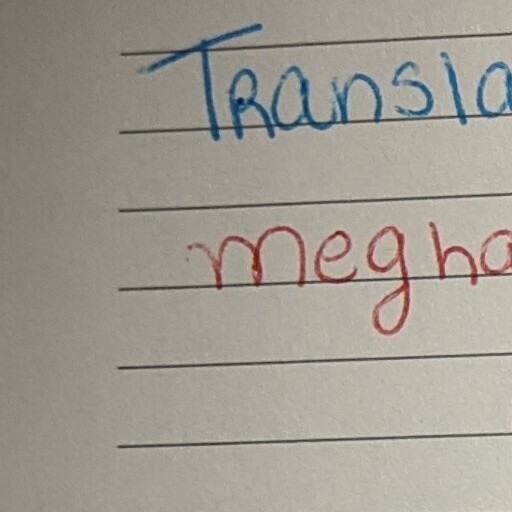 Transla
megha